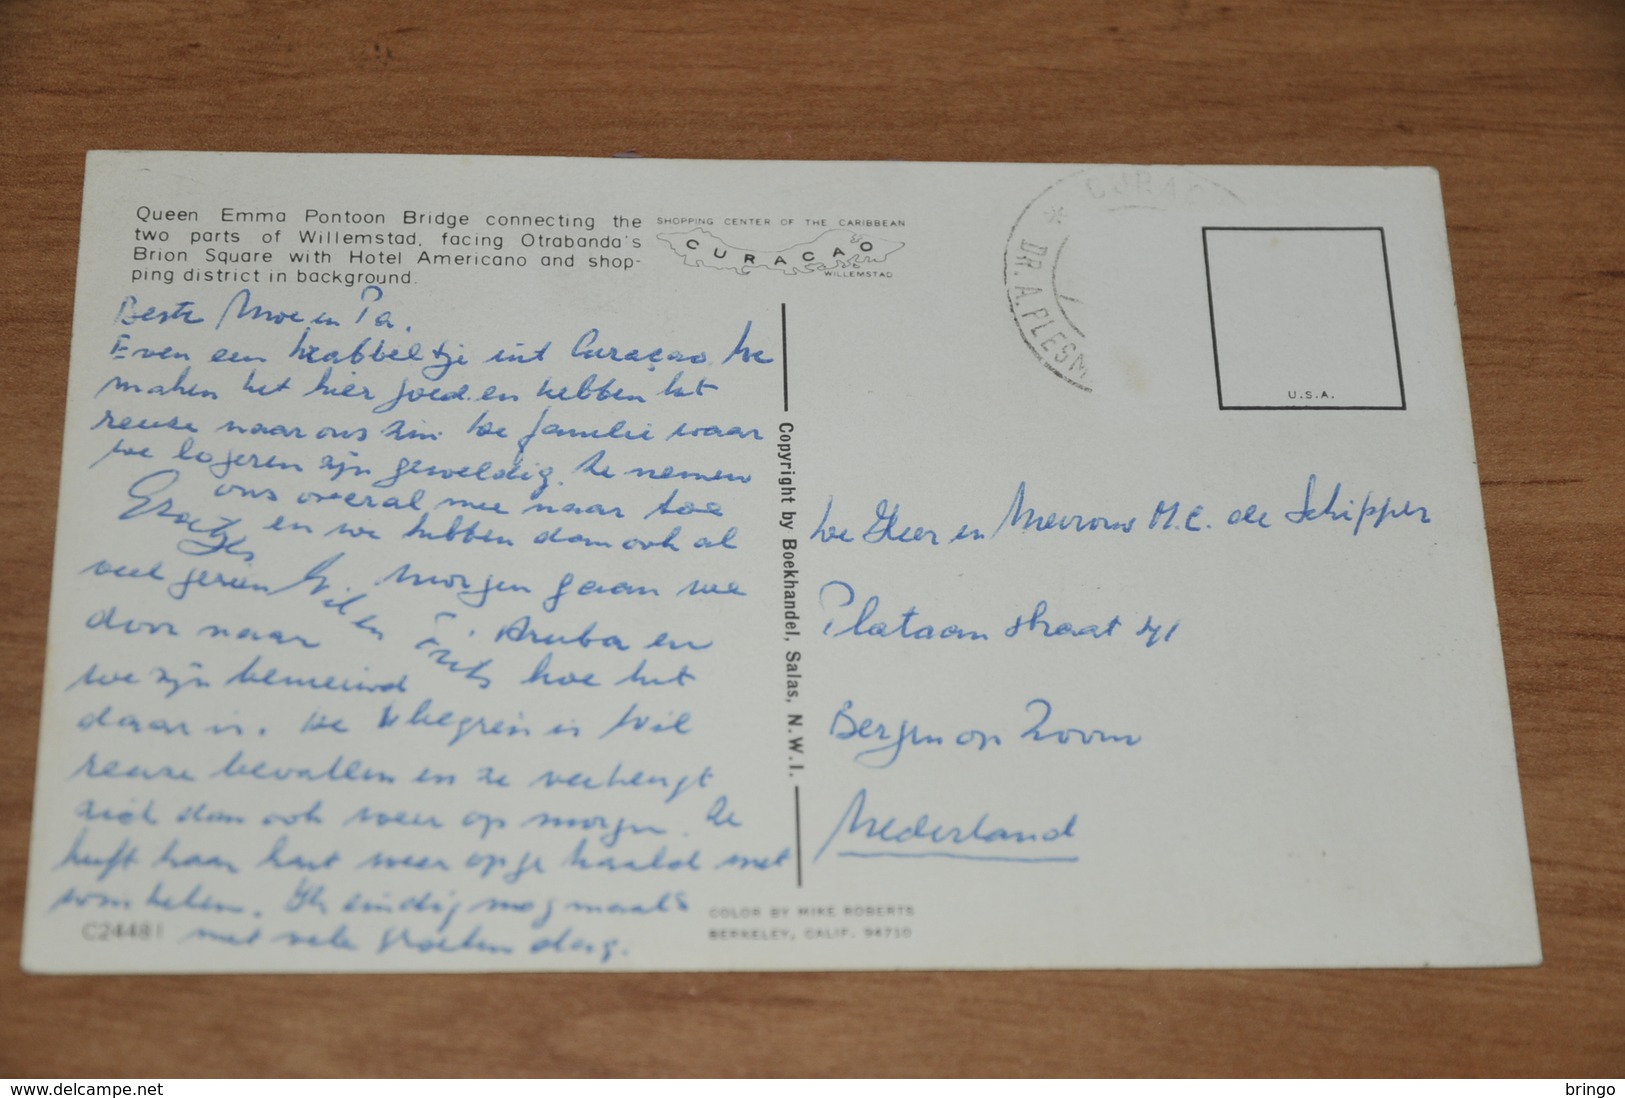 Queen Emma Pontoon Bridge connecting the
two parts of Willemstad, facing Otrabanda's
Brion Square with Hotel Americano and shop-
ping district in background.
SHOPPING CENTER OF THE CARIBBEAN
CURACAO
WILLEMSTAD
CURAC
* DR. A. PLESM
U.S.A.
Beste Moe en Pa.
Even een krabbeltje uit Curaçao. We
maken het hier goed en hebben het
reuze naar ons zin. De familie waar
we logeren zijn geweldig. Ze nemen
ons overal mee naar toe
en we hebben dan ook al
veel gezien. Morgen gaan we
door naar Aruba en
we zijn benieuwd hoe het
daar is. De vliegreis is Wil
reuze bevallen en ze verheugt
zich dan ook weer op morgen. Ze
heeft haar hart weer opgehaald met
winkelen. Ik eindig nogmaals
met vele groeten dag.
Groetjes
Wil en Frits
Copyright by Boekhandel, Salas, N.W.I.
De Heer en Mevrouw M.C. de Schipper
Plataanstraat 41
Bergen op Zoom
Nederland
C24481
COLOR BY MIKE ROBERTS
BERKELEY, CALIF. 94710
www.delcampe.net
bringo